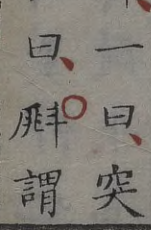 一曰突
曰𣂁謂